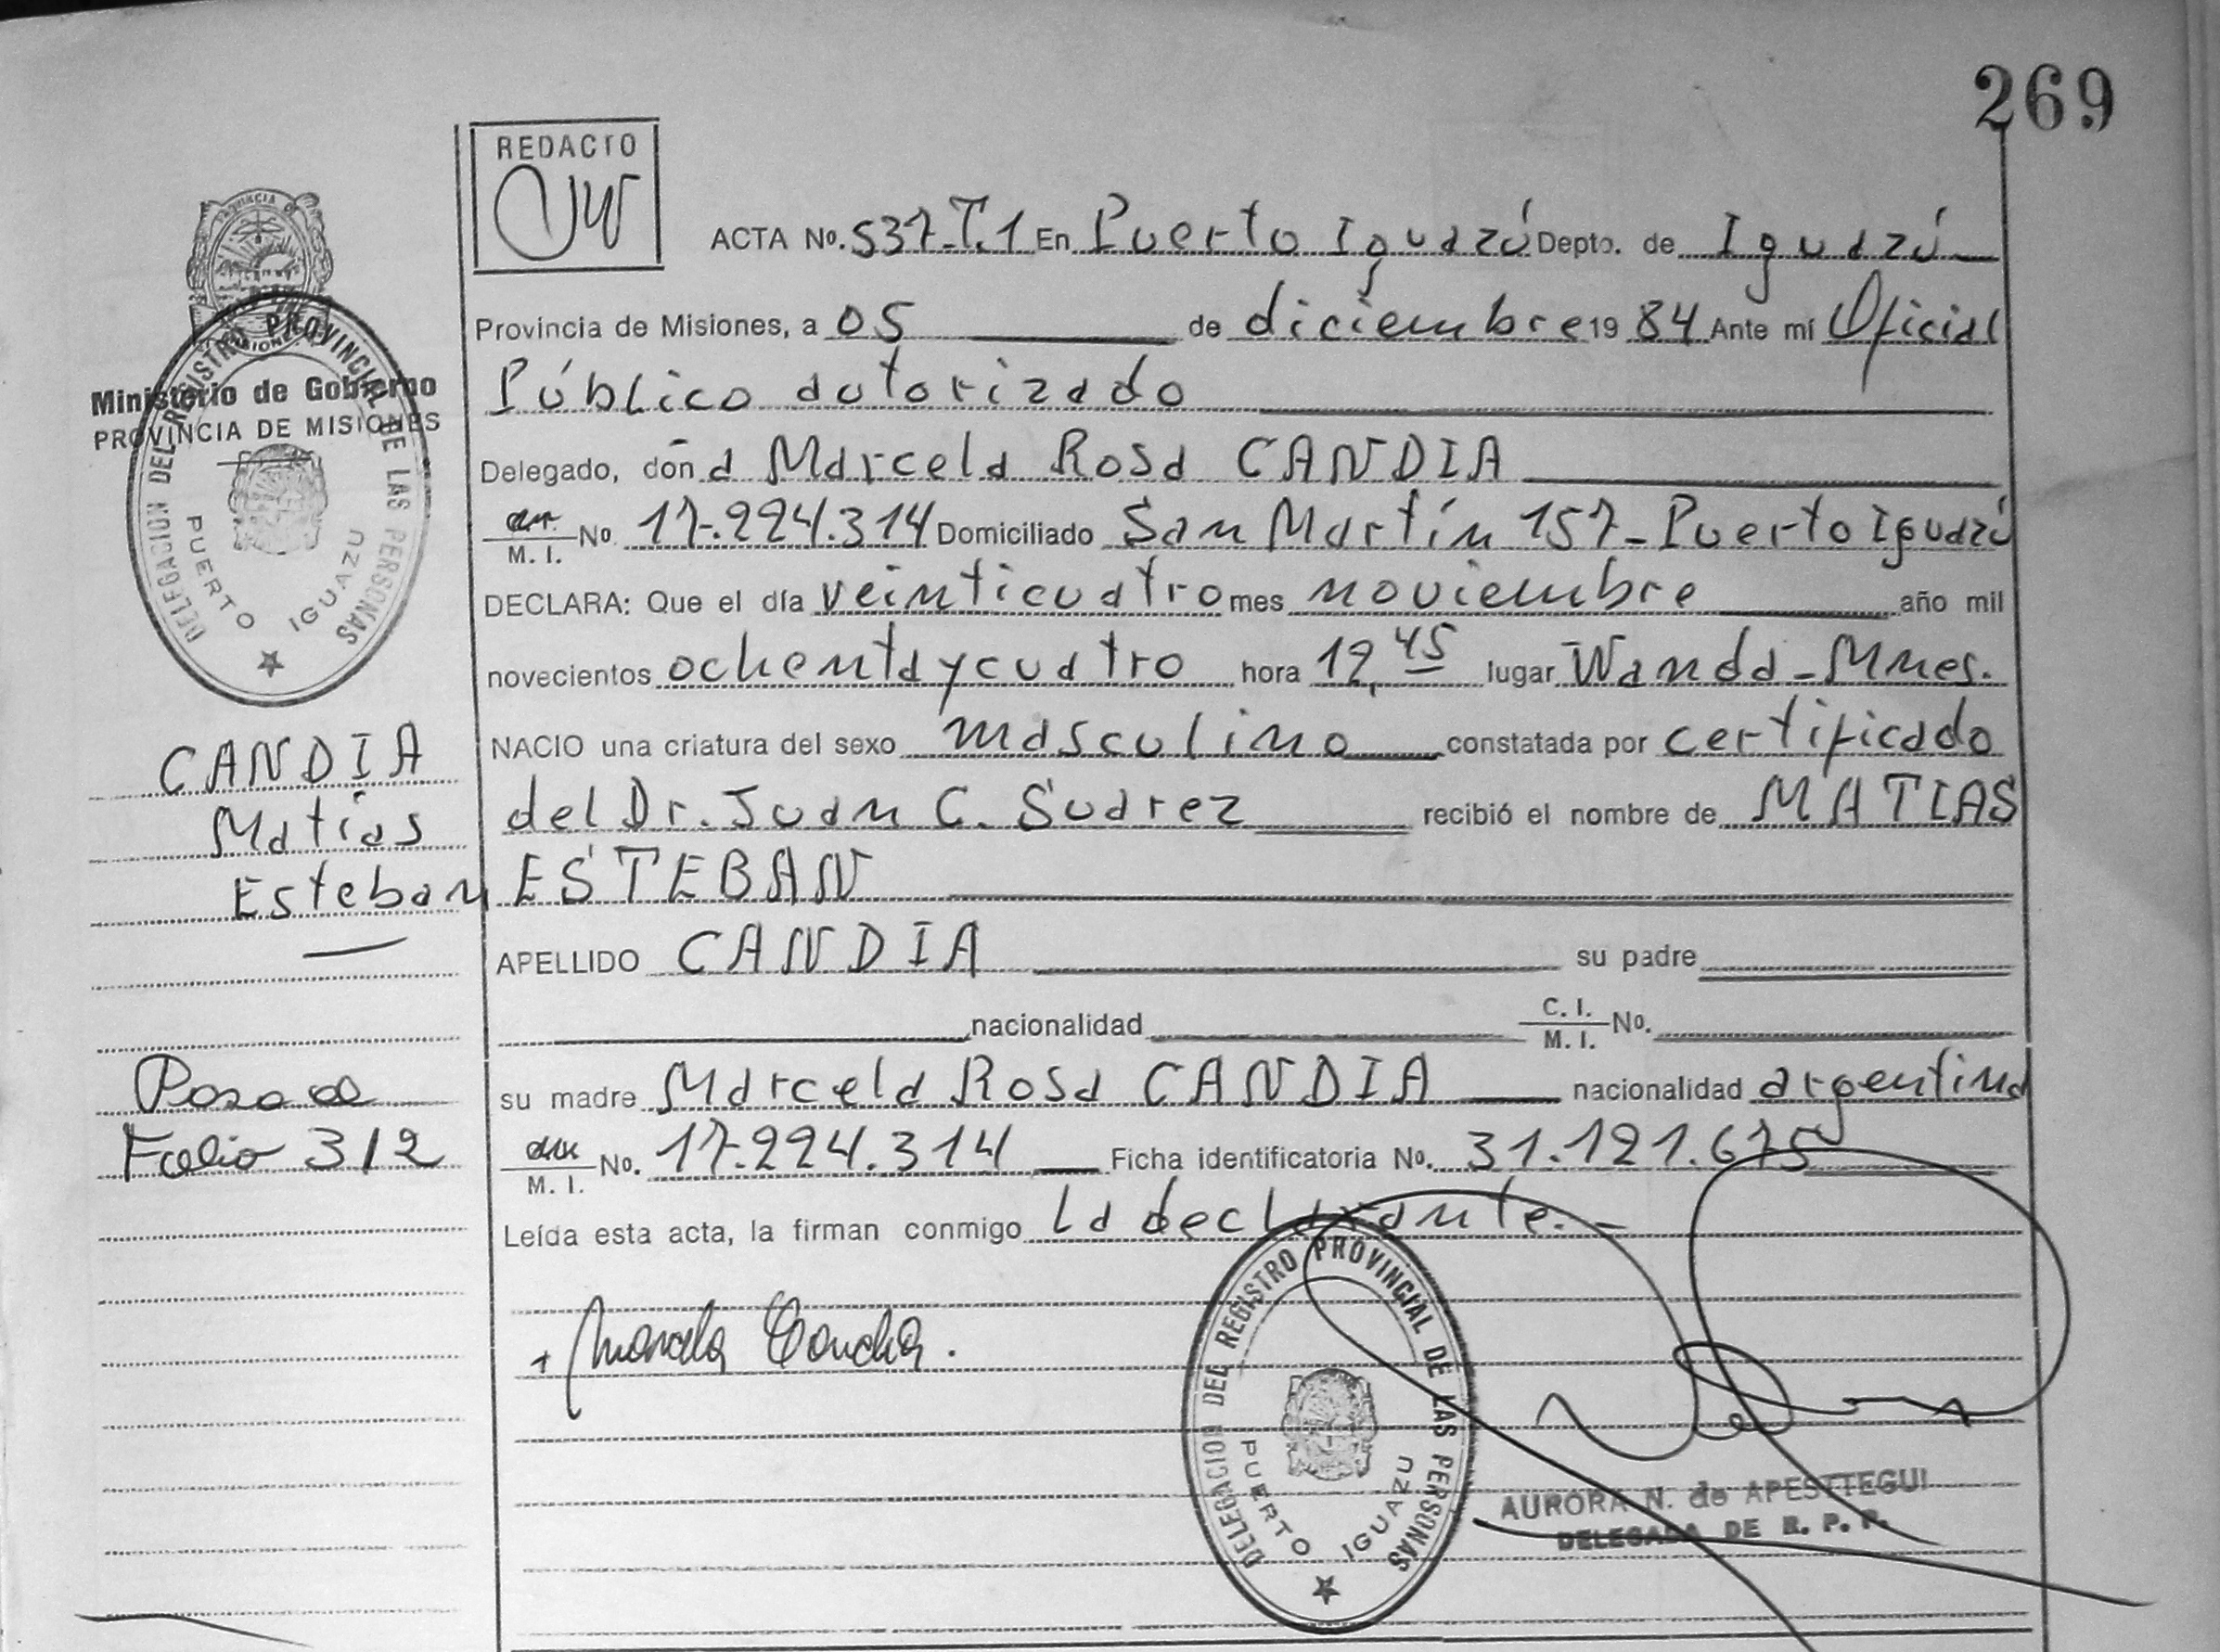 269
REDACTO
ACTA No. 537-T.1 En Puerto Iguazú Depto. de Iguazú
Provincia de Misiones, a 05 de diciembre 19 84 Ante mí Oficial
Público autorizado
Delegado, don a Marcela Rosa CANDIA
M. I. No 17.224.314 Domiciliado San Martín 157-Puerto Iguazú
DECLARA: Que el día veinticuatro mes noviembre año mil
novecientos ochenta y cuatro hora 12,45 lugar Wanda-Mnes.
NACIO una criatura del sexo masculino constatada por certificado
del Dr. Juan C. Suarez recibió el nombre de MATIAS
ESTEBAN
APELLIDO CANDIA su padre
nacionalidad C. I. M. I. No.
su madre Marcela Rosa CANDIA nacionalidad argentina
M. I. No. 17.224.314 Ficha identificatoria No. 31.121.675
Leída esta acta, la firman conmigo la declarante.-
Marcela Candia.
AURORA N. de APESTTEGUI
DELEGADA DE R. P. P.
DELEGACION DEL REGISTRO PROVINCIAL DE LAS PERSONAS
PUERTO IGUAZU
PROVINCIA DE MISIONES
Ministerio de Gobierno
PROVINCIA DE MISIONES
DELEGACION DEL REGISTRO PROVINCIAL DE LAS PERSONAS
PUERTO IGUAZU
CANDIA
Matías
Esteban
Pasa al
Folio 312